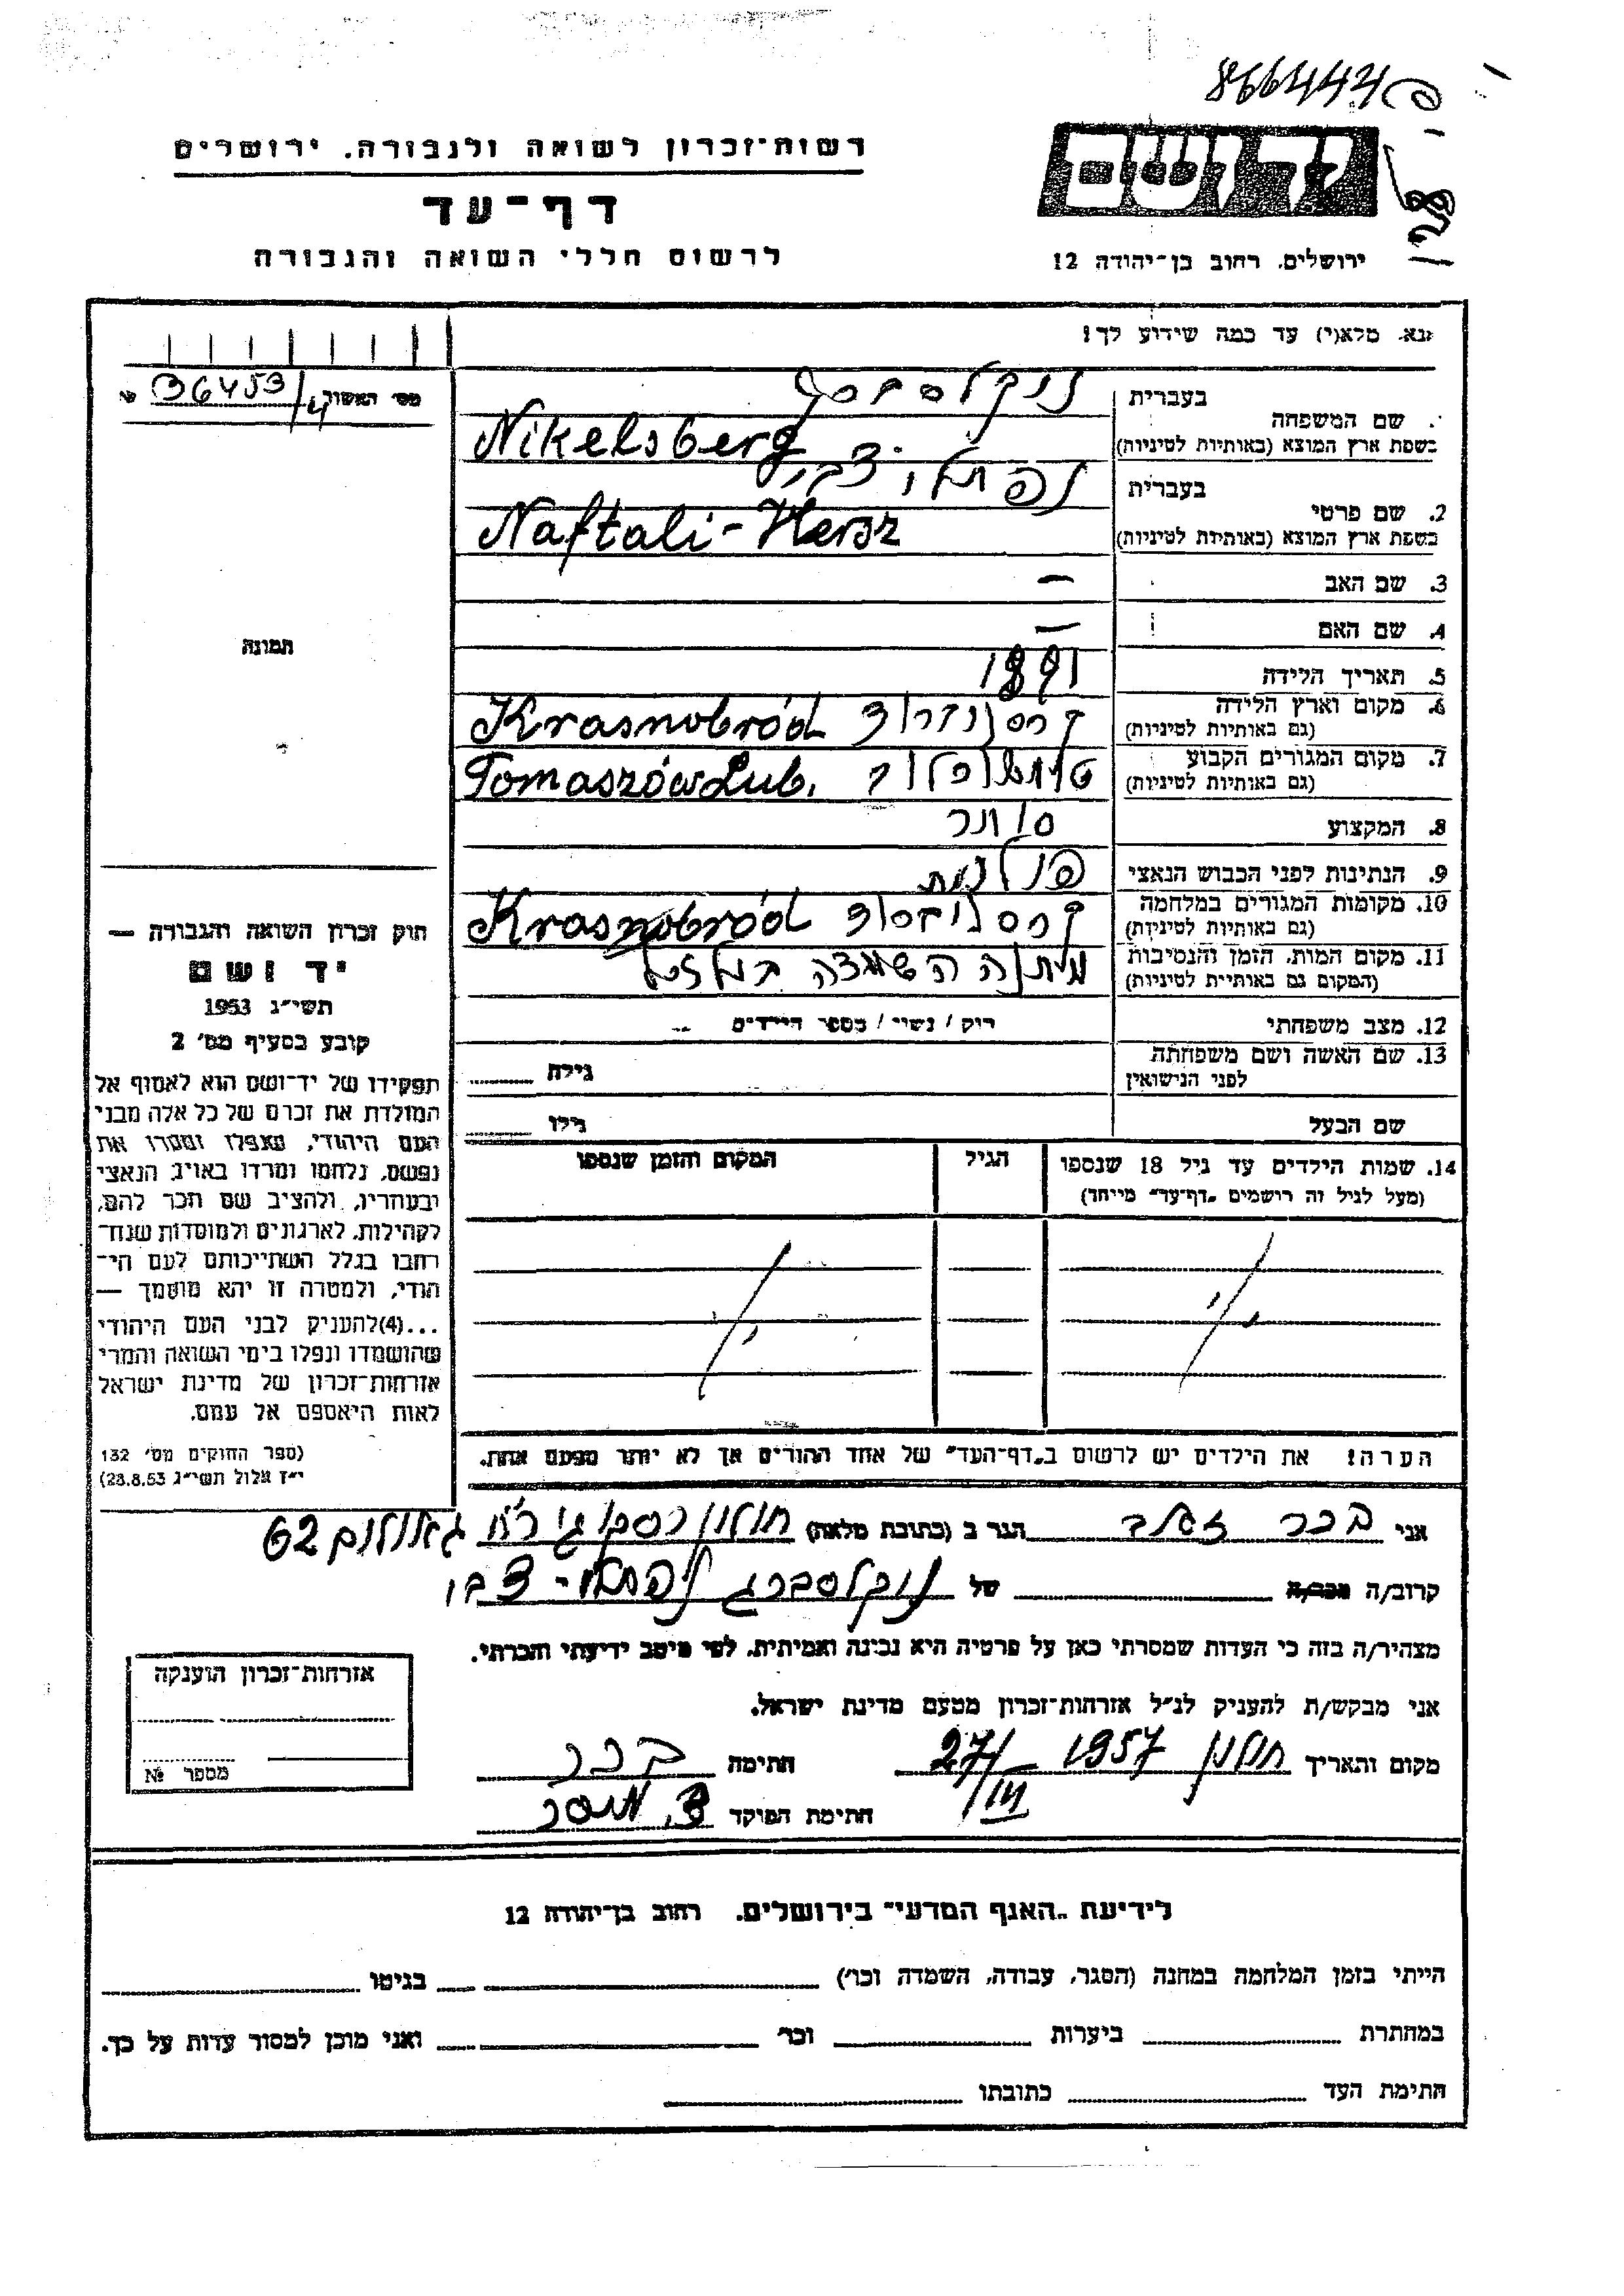 866444
רשות־זכרון לשואה ולגבורה. ירושלים
יד ושם
דף־עד
לרשום חללי השואה והגבורה
ירושלים, רחוב בן־יהודה 12
נא. מלא(י) עד כמה שידוע לך!
מס׳ האשור 36453/4 №
בעברית ניקלסברג
שם המשפחה
בשפת ארץ המוצא (באותיות לטיניות) Nikelsberg
בעברית נפתלי צבי
2. שם פרטי
בשפת ארץ המוצא (באותיות לטיניות) Naftali-Hersz
3. שם האב —
4. שם האם —
5. תאריך הלידה 1891
6. מקום וארץ הלידה קרסנוברוד Krasnobród
(גם באותיות לטיניות)
7. מקום המגורים הקבוע Tomaszów Lub.
(גם באותיות לטיניות)
8. המקצוע סוחר
9. הנתינות לפני הכבוש הנאצי פולנית
10. מקומות המגורים במלחמה קרסנוברוד Krasnobród
(גם באותיות לטיניות)
11. מקום המות, הזמן והנסיבות מחנה השמדה בלזץ
(המקום גם באותיות לטיניות)
12. מצב משפחתי רוק / נשוי / מספר הילדים
13. שם האשה ושם משפחתה גילה
לפני הנישואין
שם הבעל גילו
14. שמות הילדים עד גיל 18 שנספו הגיל המקום והזמן שנספו
(מעל לגיל זה רושמים „דף־עד" מייחד)
הערה! את הילדים יש לרשום ב„דף־העד" של אחד ההורים אך לא יותר מפעם אחת.
תמונה
חוק זכרון השואה והגבורה —
יד ושם
תשי״ג 1953
קובע בסעיף מס׳ 2
תפקידו של יד־ושם הוא לאסוף אל
המולדת את זכרם של כל אלה מבני
העם היהודי, שנפלו ומסרו את
נפשם, נלחמו ומרדו באויב הנאצי
ובעוזריו, ולהציב שם וזכר להם,
לקהילות, לארגונים ולמוסדות שנח־
רבו בגלל השתייכותם לעם הי־
הודי, ולמטרה זו יהא מוסמך —
...(4)להעניק לבני העם היהודי
שהושמדו ונפלו בימי השואה והמרי
אזרחות־זכרון של מדינת ישראל
לאות היאספם אל עמם.
(ספר החוקים מס׳ 132
י״ז אלול תשי״ג 28.8.53)
אני בכר הגר ב (כתובת מלאה) חולון 62
קרוב/ה מכר/ה של ניקלסברג נפתלי-צבי
מצהיר/ה בזה כי העדות שמסרתי כאן על פרטיה היא נכונה ואמיתית, לפי מיטב ידיעתי והכרתי.
אני מבקש/ת להעניק לנ״ל אזרחות־זכרון מטעם מדינת ישראל.
מקום ותאריך חולון 1957 27/III חתימה בכר
חתימת הפוקד
אזרחות־זכרון הוענקה
מספר №
לידיעת „האגף המדעי" בירושלים. רחוב בן־יהודה 12
הייתי בזמן המלחמה במחנה (הסגר, עבודה, השמדה וכו׳) בגיטו
במחתרת ביערות וכו׳ ואני מוכן למסור עדות על כך.
חתימת העד כתובתו